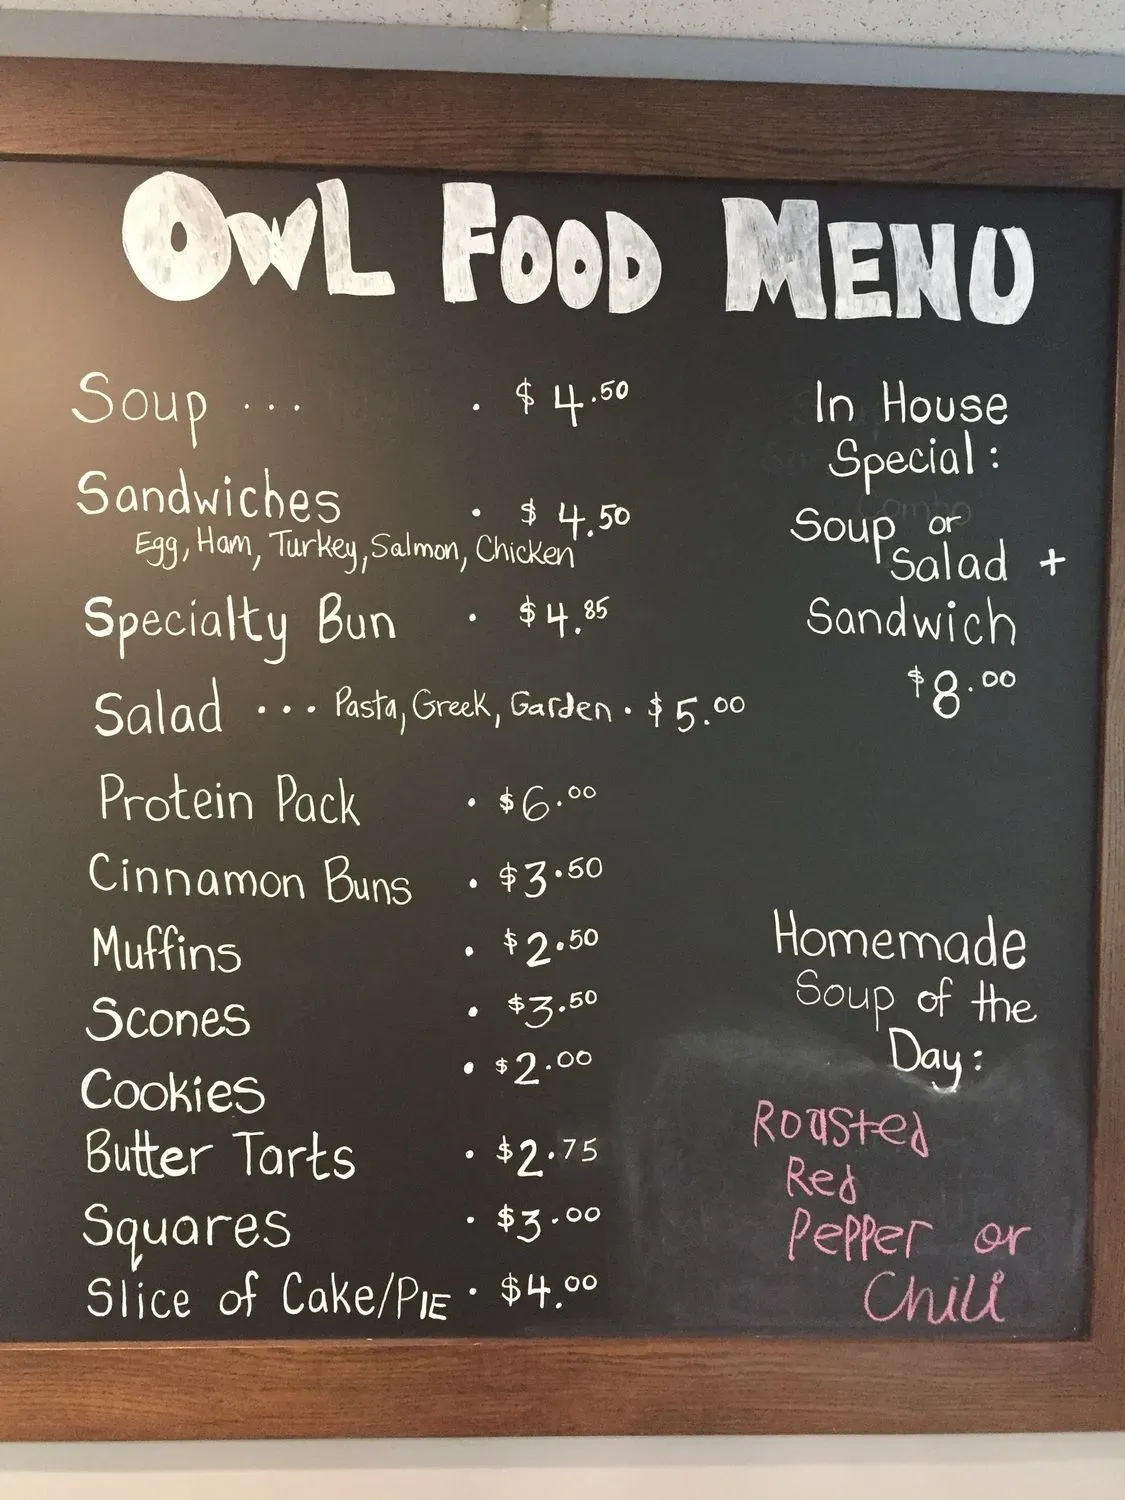 OWL FOOD MENU
Soup ... . $4.50
Sandwiches . $4.50
Egg, Ham, Turkey, Salmon, Chicken
Specialty Bun . $4.85
Salad ... Pasta, Greek, Garden . $5.00
Protein Pack . $6.00
Cinnamon Buns . $3.50
Muffins . $2.50
Scones . $3.50
Cookies . $2.00
Butter Tarts . $2.75
Squares . $3.00
Slice of Cake/PIE . $4.00
In House
Special:
Soup or
Salad +
Sandwich
$8.00
Homemade
Soup of the
Day:
Roasted
Red
Pepper or
Chili